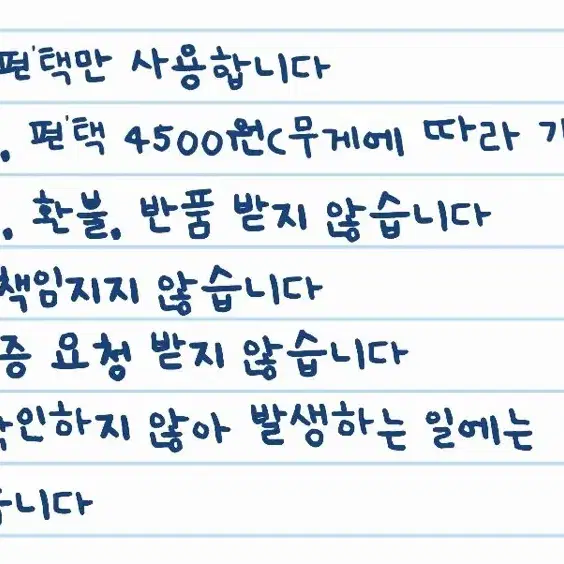 편택만 사용합니다
. 편택 4500원(무게에 따라
. 환불. 반품 받지 않습니다
책임지지 않습니다
증 요청 받지 않습니다
확인하지 않아 발생하는 일에는
습니다